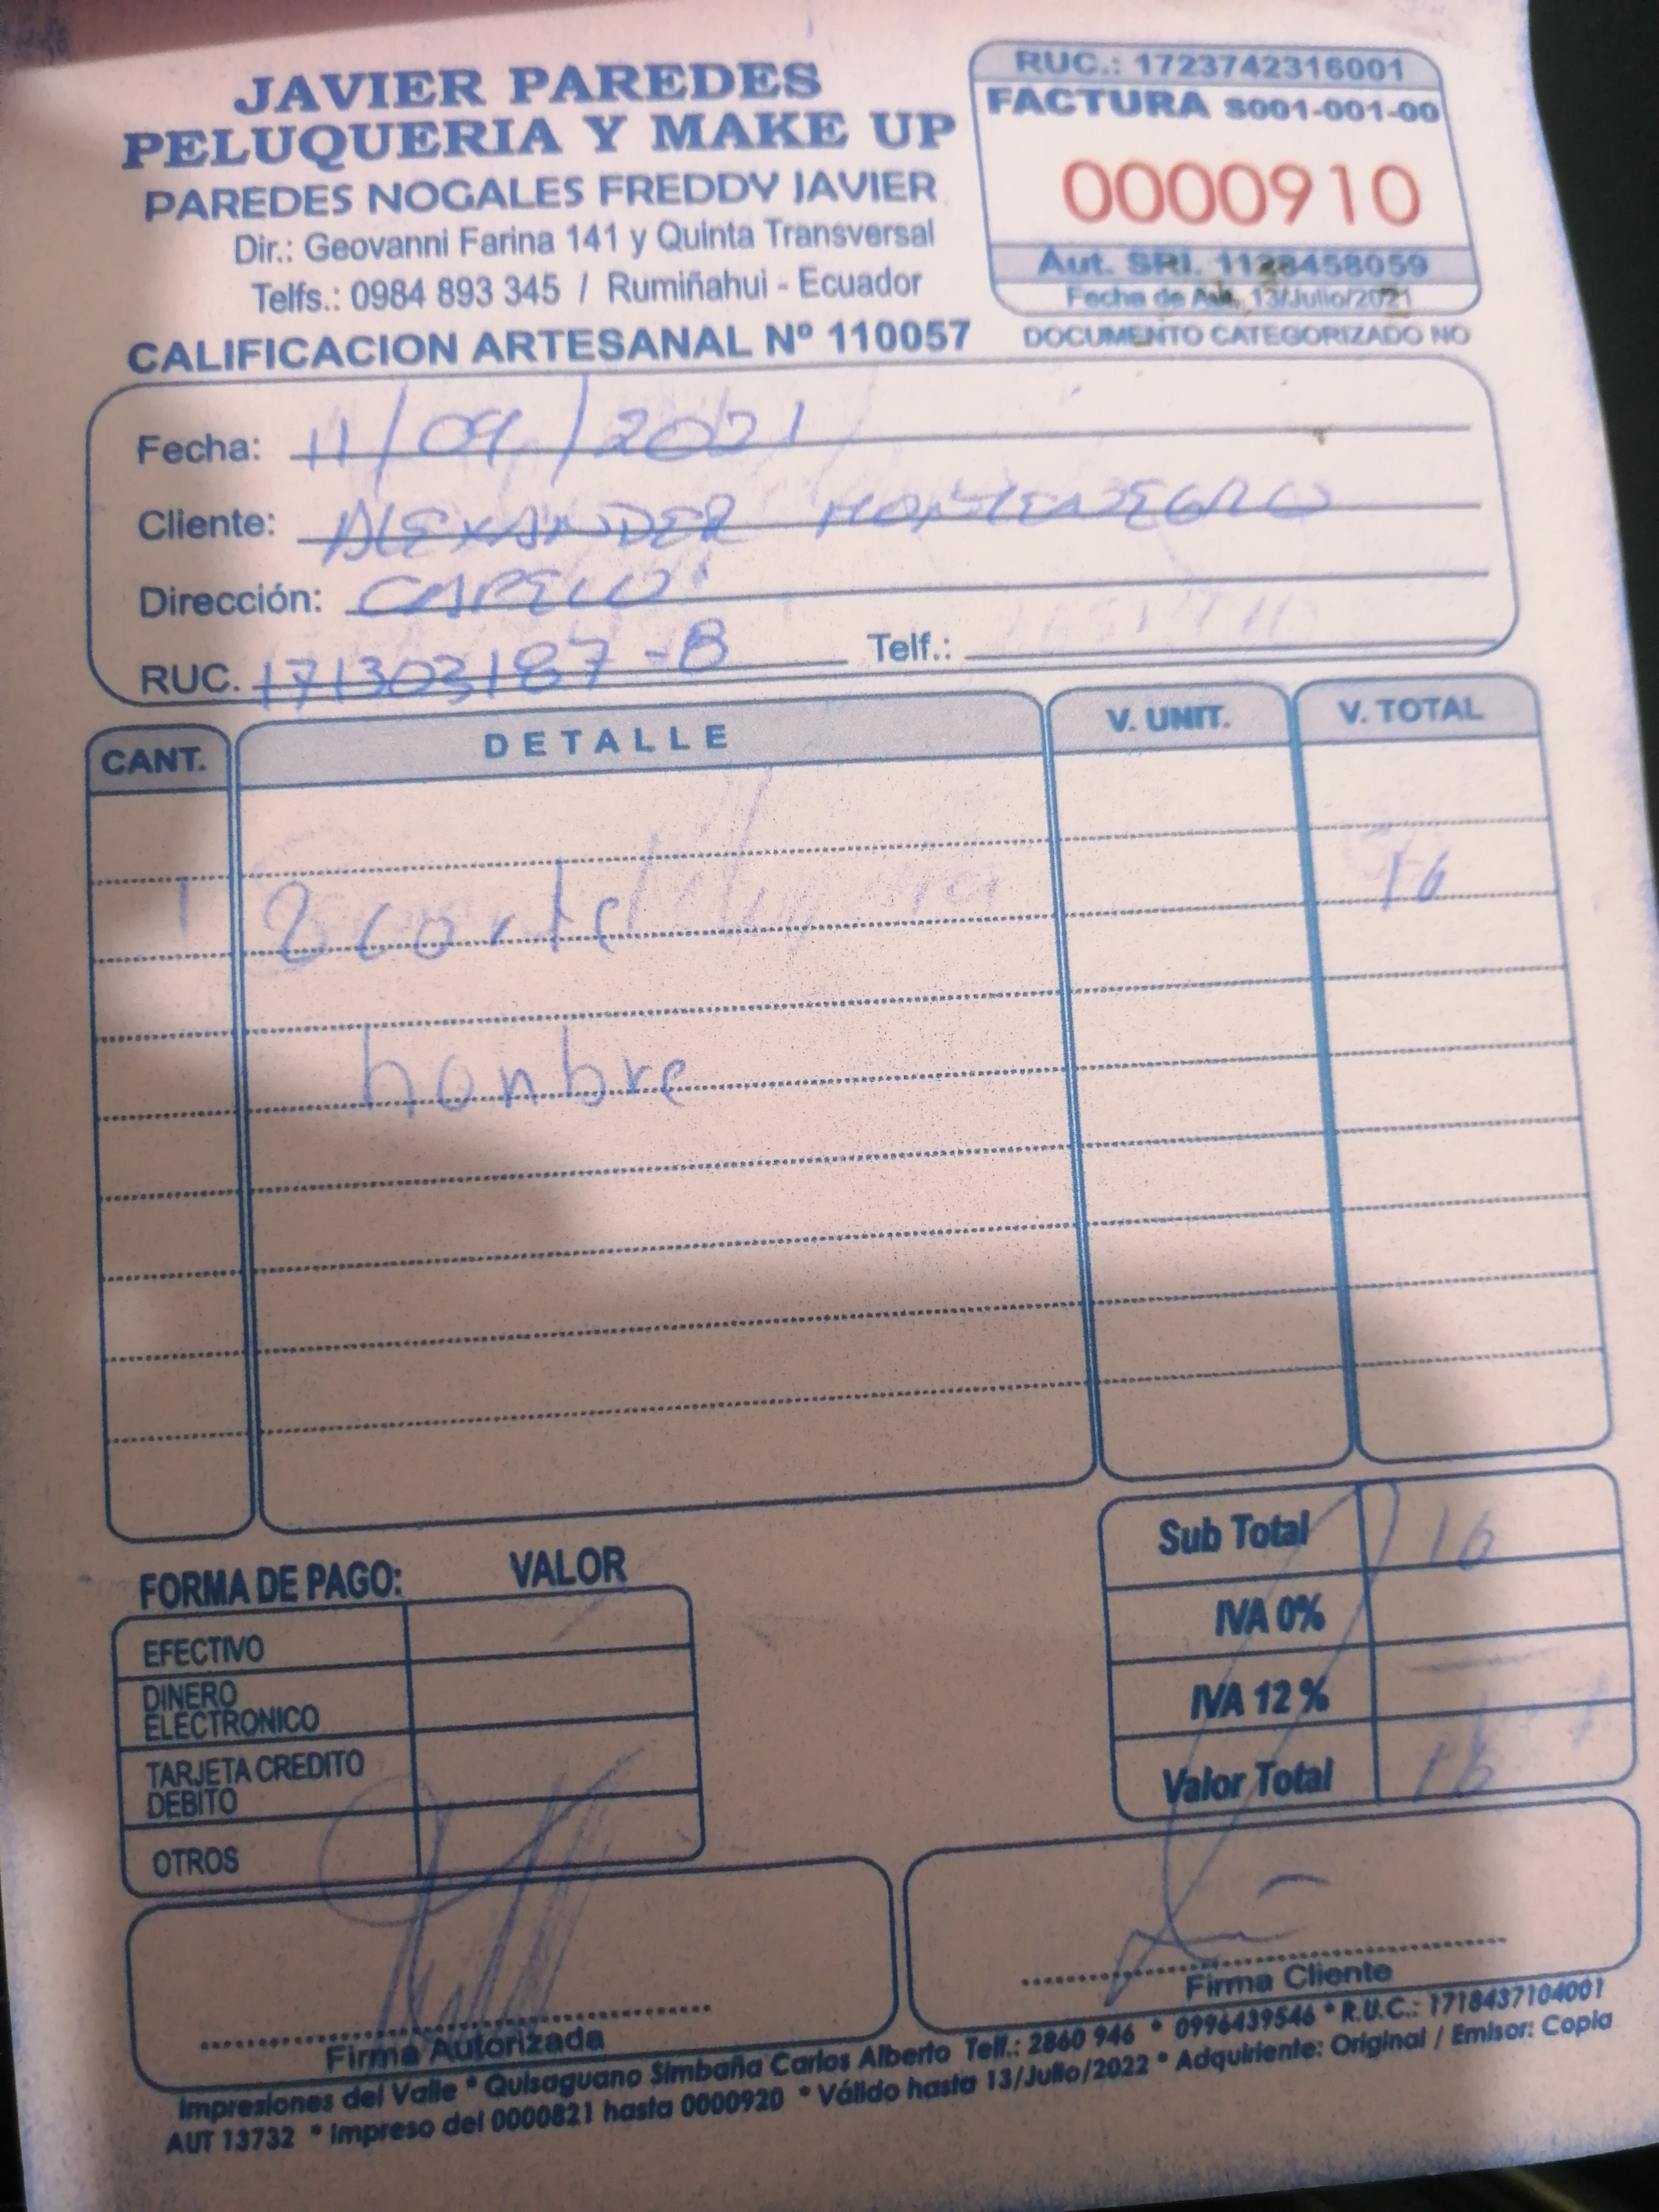 JAVIER PAREDES
PELUQUERIA Y MAKE UP
PAREDES NOGALES FREDDY JAVIER
Dir.: Geovanni Farina 141 y Quinta Transversal
Telfs.: 0984 893 345 / Rumiñahui - Ecuador
CALIFICACION ARTESANAL Nº 110057
RUC.: 1723742316001
FACTURA S001-001-00
0000910
Aut. SRI. 1128458059
Fecha de Aut. 13/Julio/2021
DOCUMENTO CATEGORIZADO NO
Fecha: 11/09/2021
Cliente: ALEXANDER MONTENEGRO
Dirección: CAPELO
RUC. 171303187-8 Telf.:
CANT. DETALLE V. UNIT. V. TOTAL
2 corte 16
hombre
Sub Total 16
IVA 0%
IVA 12 %
Valor Total 16
FORMA DE PAGO: VALOR
EFECTIVO
DINERO ELECTRONICO
TARJETA CREDITO DEBITO
OTROS
Firma Autorizada
Firma Cliente
Impresiones del Valle * Quisaguano Simbaña Carlos Alberto Telf.: 2860 946 * 0996439546 * R.U.C.: 1718437104001
AUT 13732 * Impreso del 0000821 hasta 0000920 * Válido hasta 13/Julio/2022 * Adquiriente: Original / Emisor: Copia